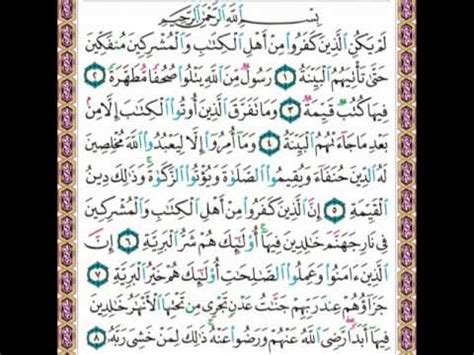 بِسْمِ اللَّهِ الرَّحْمَٰنِ الرَّحِيمِ
لَمْ يَكُنِ الَّذِينَ كَفَرُوا مِنْ أَهْلِ الْكِتَابِ وَالْمُشْرِكِينَ مُنفَكِّينَ
حَتَّىٰ تَأْتِيَهُمُ الْبَيِّنَةُ ١ رَسُولٌ مِّنَ اللَّهِ يَتْلُوا صُحُفًا مُّطَهَّرَةً ٢
فِيهَا كُتُبٌ قَيِّمَةٌ ٣ وَمَا تَفَرَّقَ الَّذِينَ أُوتُوا الْكِتَابَ إِلَّا مِن
بَعْدِ مَا جَاءَتْهُمُ الْبَيِّنَةُ ٤ وَمَا أُمِرُوا إِلَّا لِيَعْبُدُوا اللَّهَ مُخْلِصِينَ
لَهُ الدِّينَ حُنَفَاءَ وَيُقِيمُوا الصَّلَوٰةَ وَيُؤْتُوا الزَّكَوٰةَ وَذَٰلِكَ دِينُ
الْقَيِّمَةِ ٥ إِنَّ الَّذِينَ كَفَرُوا مِنْ أَهْلِ الْكِتَابِ وَالْمُشْرِكِينَ
فِي نَارِ جَهَنَّمَ خَالِدِينَ فِيهَا أُولَٰئِكَ هُمْ شَرُّ الْبَرِيَّةِ ٦ إِنَّ
الَّذِينَ ءَامَنُوا وَعَمِلُوا الصَّالِحَاتِ أُولَٰئِكَ هُمْ خَيْرُ الْبَرِيَّةِ ٧
جَزَاؤُهُمْ عِندَ رَبِّهِمْ جَنَّاتُ عَدْنٍ تَجْرِي مِن تَحْتِهَا الْأَنْهَارُ خَالِدِينَ
فِيهَا أَبَدًا رَّضِيَ اللَّهُ عَنْهُمْ وَرَضُوا عَنْهُ ذَٰلِكَ لِمَنْ خَشِيَ رَبَّهُ ٨